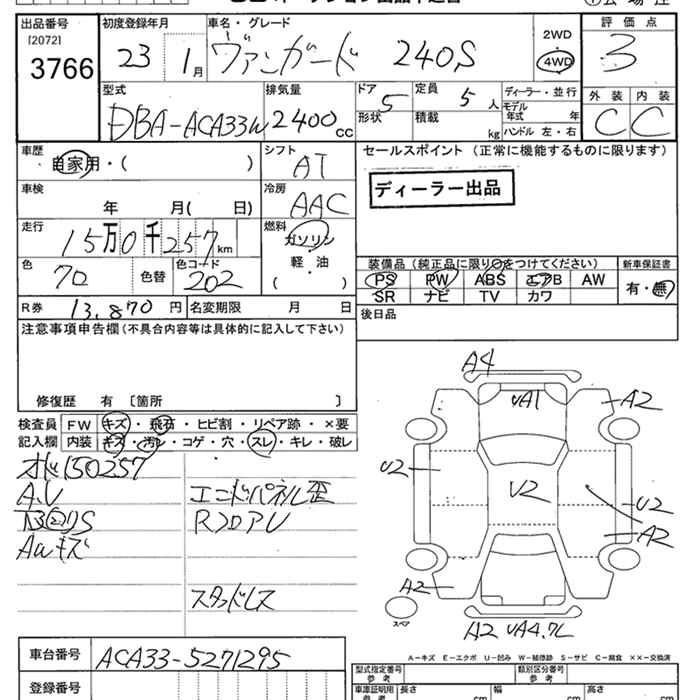 出品番号
[2072]
3766
初度登録年月
23 1月
車名・グレード
ヴァンガード 240S
2WD
4WD
評価点
3
型式
DBA-ACA33W
排気量
2400cc
ドア
5
形状
定員
5人
積載
kg
ディーラー・並行
モデル年式 年
ハンドル 左・右
外装 内装
C C
車歴
自家用・( )
シフト
AT
車検
年 月( 日)
冷房
AAC
走行
15万0千257km
燃料
ガソリン
・
軽・油
( )
色
70
色替
色コード
202
R券 13,870円
名変期限 月 日
セールスポイント (正常に機能するものに限ります)
ディーラー出品
装備品(純正品に限り○をつけてください)
PS PW ABS エアB AW
SR ナビ TV カワ
新車保証書
有・無
後日品
注意事項申告欄(不具合内容等は具体的に記入して下さい)
修復歴 有 〔箇所 〕
検査員記入欄
FW キズ・飛石・ヒビ割・リペア跡・×要
内装 キズ・汚レ・コゲ・穴・スレ・キレ・破レ
150257
A.U
エンドパネル歪
RフロアU
Awキズ
スタッドレス
A4
UA1
A2
U2
U2
U2
A2
A2
スペア
A2 UA4.7L
A－キズ E－エクボ U－凹み W－補修跡 S－サビ C－腐食 ××－交換済
車台番号
ACA33-5271295
登録番号
型式指定番号
参考
類別区分番号
参考
車庫証明用
参考
長さ cm
幅 cm
高さ cm